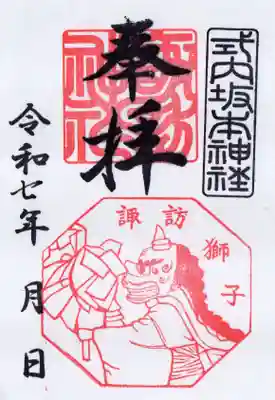 式内坂本神社
奉拝
諏訪神社
諏訪獅子
令和七年 月 日